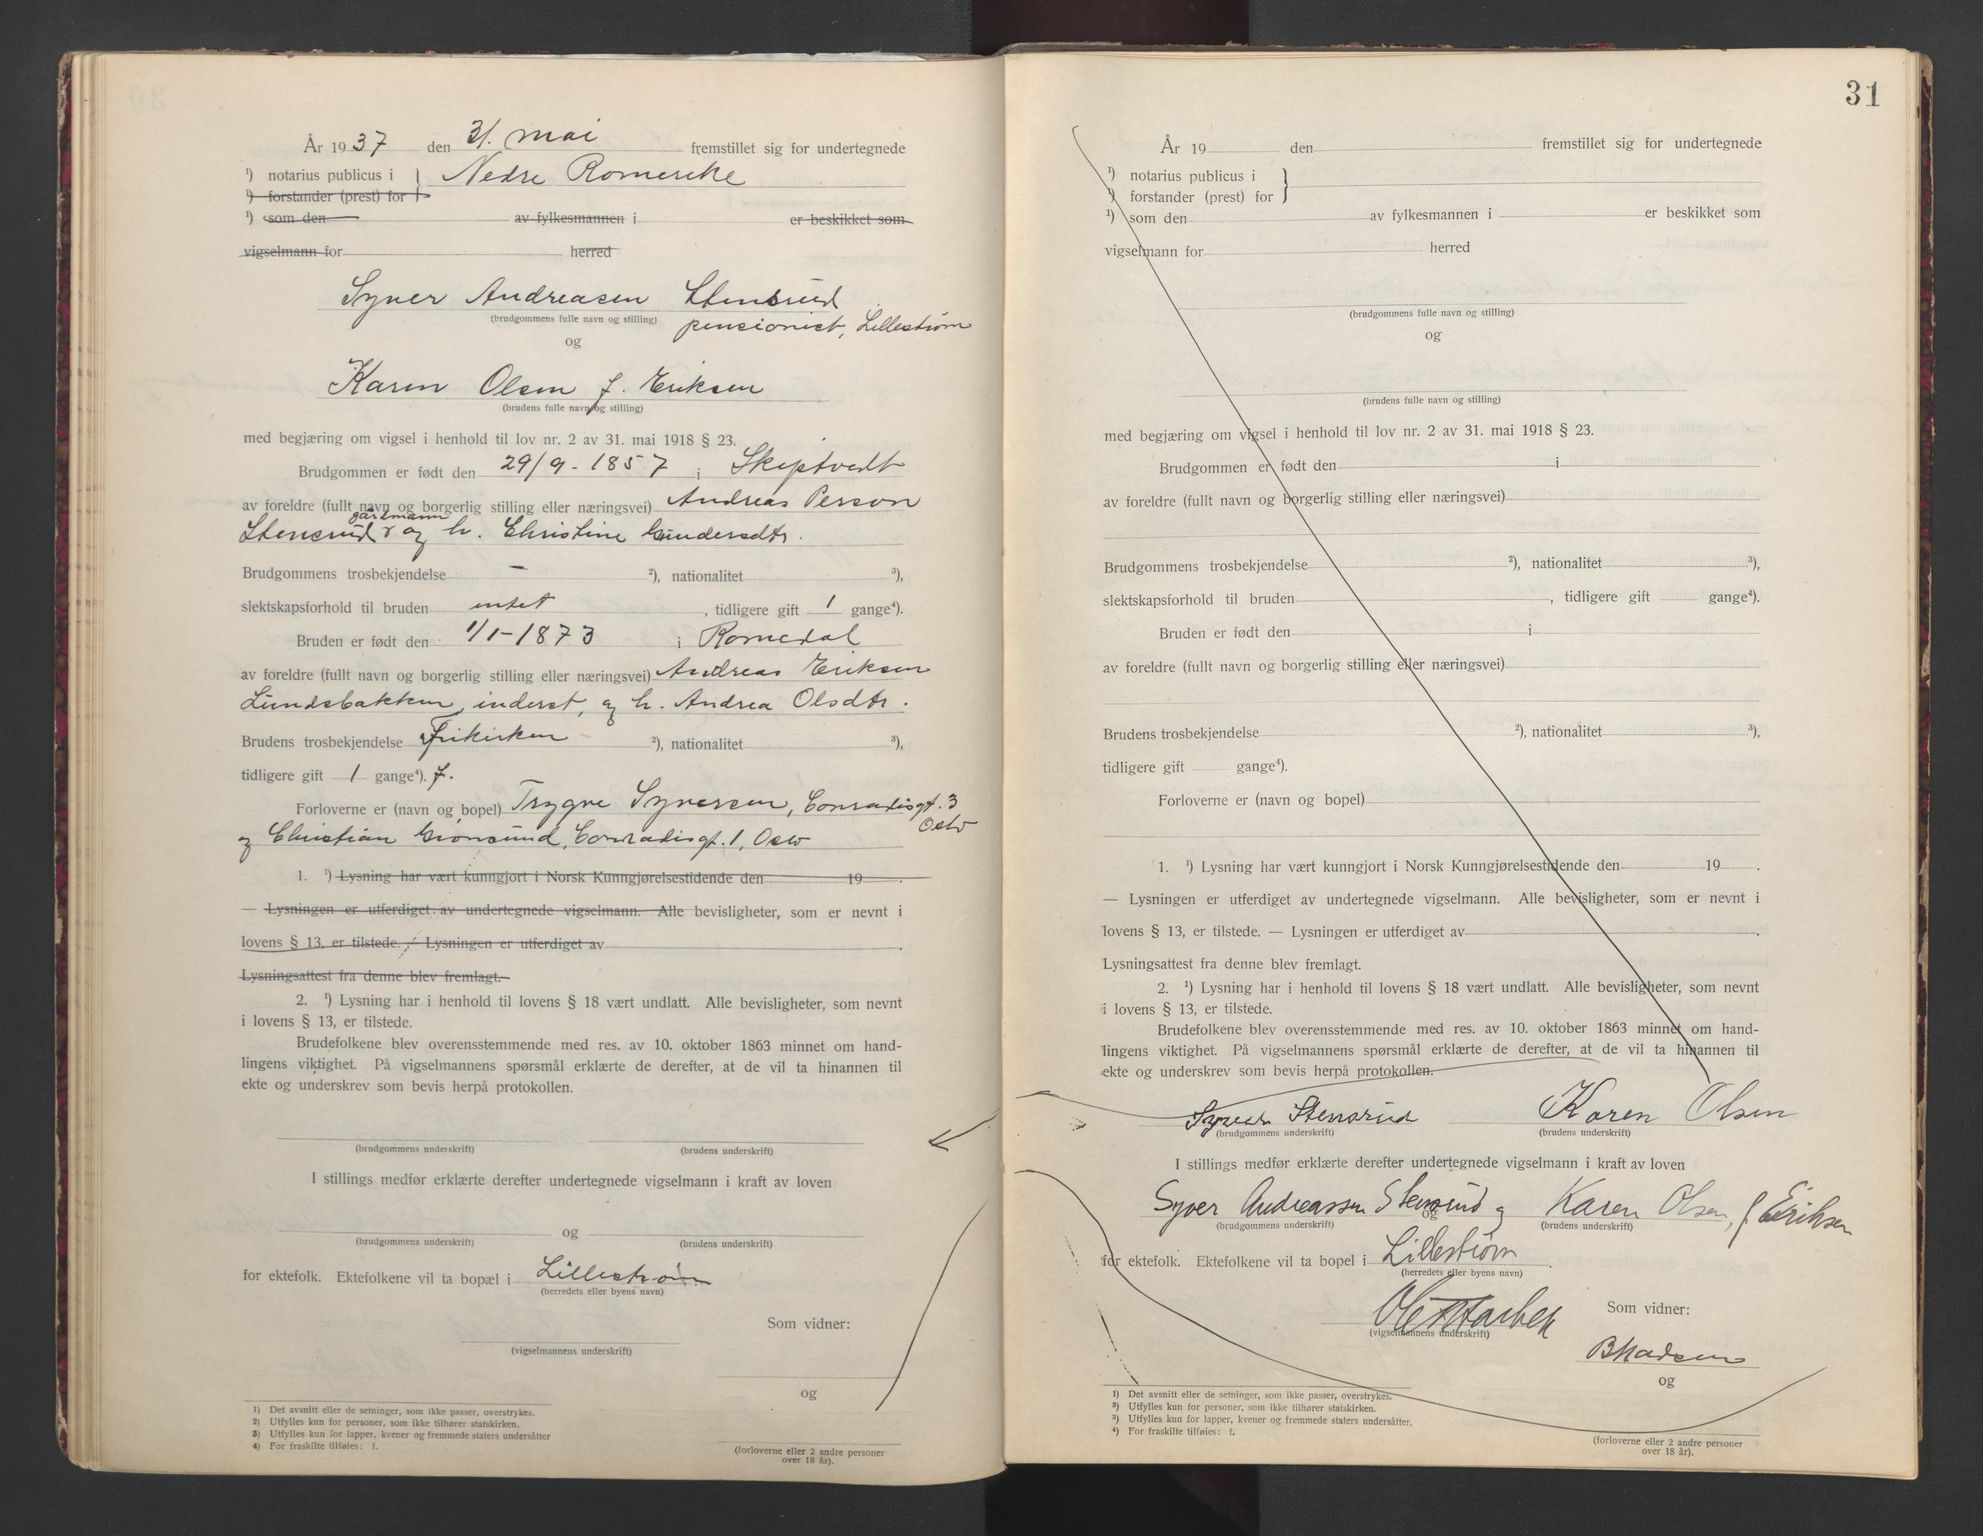 År 1937 den 31. mai fremstillet sig for undertegnede
¹) notarius publicus i } Nedre Romerike
¹) forstander (prest) for
¹) som den av fylkesmannen i er beskikket som
vigselmann for herred
Syver Andreasen Stensrud
(brudgommens fulle navn og stilling) pensionist, Lillestrøm
og
Karen Olsen f. Eriksen
(brudens fulle navn og stilling)
med begjæring om vigsel i henhold til lov nr. 2 av 31. mai 1918 § 23.
Brudgommen er født den 29/9-1857 i Skiptvedt
av foreldre (fullt navn og borgerlig stilling eller næringsvei) Andreas Person
gårdmann
Stensrud og h. Christine Gundersdtr.
Brudgommens trosbekjendelse – ²), nationalitet ³),
slektskapsforhold til bruden intet, tidligere gift 1 gange⁴).
Bruden er født den 1/1-1873 i Romedal
av foreldre (fullt navn og borgerlig stilling eller næringsvei) Andreas Eriksen
Lundsbakken, inderst, og h. Andrea Olsdtr.
Brudens trosbekjendelse Frikirken ²), nationalitet ³),
tidligere gift 1 gange⁴). f.
Forloverne er (navn og bopel) Trygve Syversen, Conradisgt. 3
Oslo
og Christian Grønsund, Conradisgt. 1, Oslo
1. ¹) Lysning har vært kunngjort i Norsk Kunngjørelsestidende den 19 .
— Lysningen er utferdiget av undertegnede vigselmann. Alle bevisligheter, som er nevnt i
lovens § 13, er tilstede. — Lysningen er utferdiget av .
Lysningsattest fra denne blev fremlagt.
2. ¹) Lysning har i henhold til lovens § 18 vært undlatt. Alle bevisligheter, som nevnt
i lovens § 13, er tilstede.
Brudefolkene blev overensstemmende med res. av 10. oktober 1863 minnet om hand-
lingens viktighet. På vigselmannens spørsmål erklærte de derefter, at de vil ta hinannen til
ekte og underskrev som bevis herpå protokollen.
(brudgommens underskrift) (brudens underskrift)
I stillings medfør erklærte derefter undertegnede vigselmann i kraft av loven
og
(brudgommens underskrift) (brudens underskrift)
for ektefolk. Ektefolkene vil ta bopæl i Lillestrøm
(herredets eller byens navn)
Som vidner:
(vigselmannens underskrift)
og
¹) Det avsnitt eller de setninger, som ikke passer, overstrykes.
²) Utfylles kun for personer, som ikke tilhører statskirken.
³) Utfylles kun for lapper, kvener og fremmede staters undersåtter
⁴) For fraskilte tilføies: f.
(forloverne eller 2 andre personer
over 18 år).
31
År 19 den fremstillet sig for undertegnede
¹) notarius publicus i }
¹) forstander (prest) for
¹) som den av fylkesmannen i er beskikket som
vigselmann for herred
(brudgommens fulle navn og stilling)
og
(brudens fulle navn og stilling)
med begjæring om vigsel i henhold til lov nr. 2 av 31. mai 1918 § 23.
Brudgommen er født den i
av foreldre (fullt navn og borgerlig stilling eller næringsvei)
Brudgommens trosbekjendelse ²), nationalitet ³),
slektskapsforhold til bruden , tidligere gift gange⁴).
Bruden er født den i
av foreldre (fullt navn og borgerlig stilling eller næringsvei)
Brudens trosbekjendelse ²), nationalitet ³),
tidligere gift gange⁴).
Forloverne er (navn og bopel)
1. ¹) Lysning har vært kunngjort i Norsk Kunngjørelsestidende den 19 .
— Lysningen er utferdiget av undertegnede vigselmann. Alle bevisligheter, som er nevnt i
lovens § 13, er tilstede. — Lysningen er utferdiget av .
Lysningsattest fra denne blev fremlagt.
2. ¹) Lysning har i henhold til lovens § 18 vært undlatt. Alle bevisligheter, som nevnt
i lovens § 13, er tilstede.
Brudefolkene blev overensstemmende med res. av 10. oktober 1863 minnet om hand-
lingens viktighet. På vigselmannens spørsmål erklærte de derefter, at de vil ta hinannen til
ekte og underskrev som bevis herpå protokollen.
Syver Stensrud Karen Olsen
(brudgommens underskrift) (brudens underskrift)
I stillings medfør erklærte derefter undertegnede vigselmann i kraft av loven
Syver Andreassen Stensrud og Karen Olsen, f. Eriksen
og
(brudgommens underskrift) (brudens underskrift)
for ektefolk. Ektefolkene vil ta bopel i Lillestrøm.
(herredets eller byens navn)
Som vidner:
(vigselmannens underskrift)
B Madsen
og
¹) Det avsnitt eller de setninger, som ikke passer, overstrykes.
²) Utfylles kun for personer, som ikke tilhører statskirken.
³) Utfylles kun for lapper, kvener og fremmede staters undersåtter.
⁴) For fraskilte tilføies: f.
(forloverne eller 2 andre personer
over 18 år).